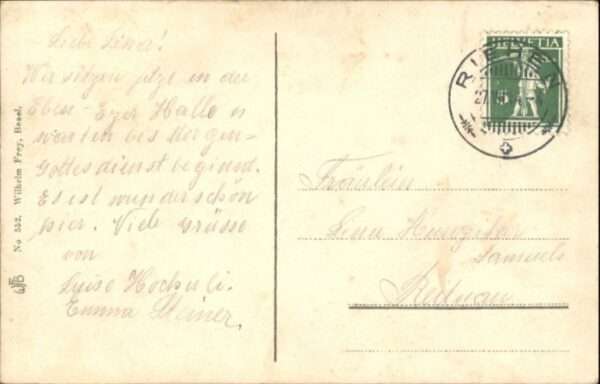 Liebe Lina!
Wir sitzen jetzt in der
Eben-Ezer Halle u
warten bis der
Gottesdienst beginnt.
Es ist wunderschön
hier. Viele Grüsse
von
Luise Hochuli.
Emma Steiner.
No 552. Wilhelm Frey, Basel.
HELVETIA
RIEHEN
Fräulein
Lina Hunziker
Samuels